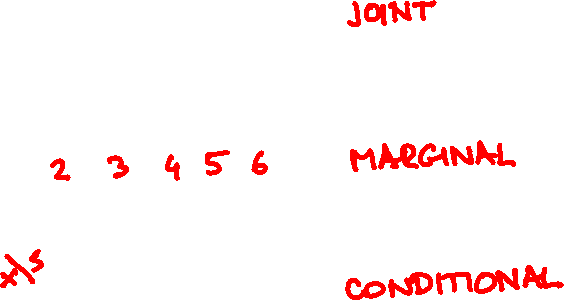 JOINT
2 3 4 5 6 MARGINAL
x\s
CONDITIONAL